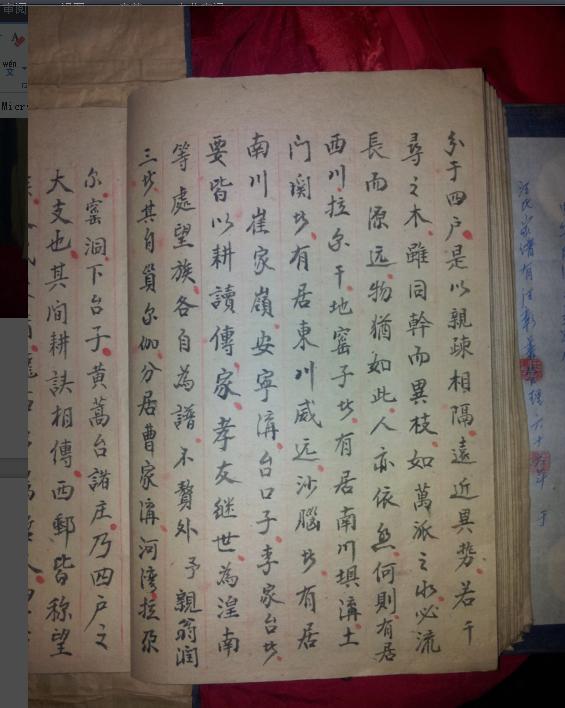 分于四戶是以親疎相隔遠近異勢若千
尋之木雖同幹而異枝如萬派之水必流
長而源远物猶如此人亦依然何則有居
西川拉尔干地窰子者有居南川埧溝土
门関者有居東川威远沙腦者有居
南川崔家嶺安寧溝台口子李家台者
要皆以耕讀傳家孝友继世為湟南
等處望族各自為譜不贅外予親翁润
三者其自貿尔伽分居曹家溝河湾拉尕
尔窰洞下台子黄蒿台諸庄乃四戶之
大支也其间耕讀相傳西鄉皆称望
汪氏家谱有汪彰
审阅
wén
文
Micr